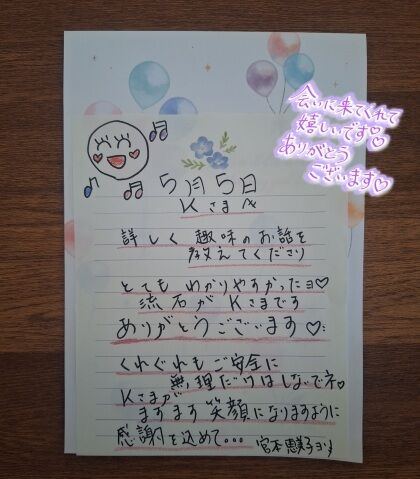 会いに来てくれて
嬉しいです♡
ありがとう
ございます♡
5月5日
Kさまへ
詳しく趣味のお話を
教えてくださり
とてもわかりやすかったョ♡
流石がKさまです
ありがとうございます♡:
くれぐれもご安全に
無理だけはしないでネ♡
Kさまが
ますます笑顔になりますように
感謝を込めて…宮本恵美子ヨリ